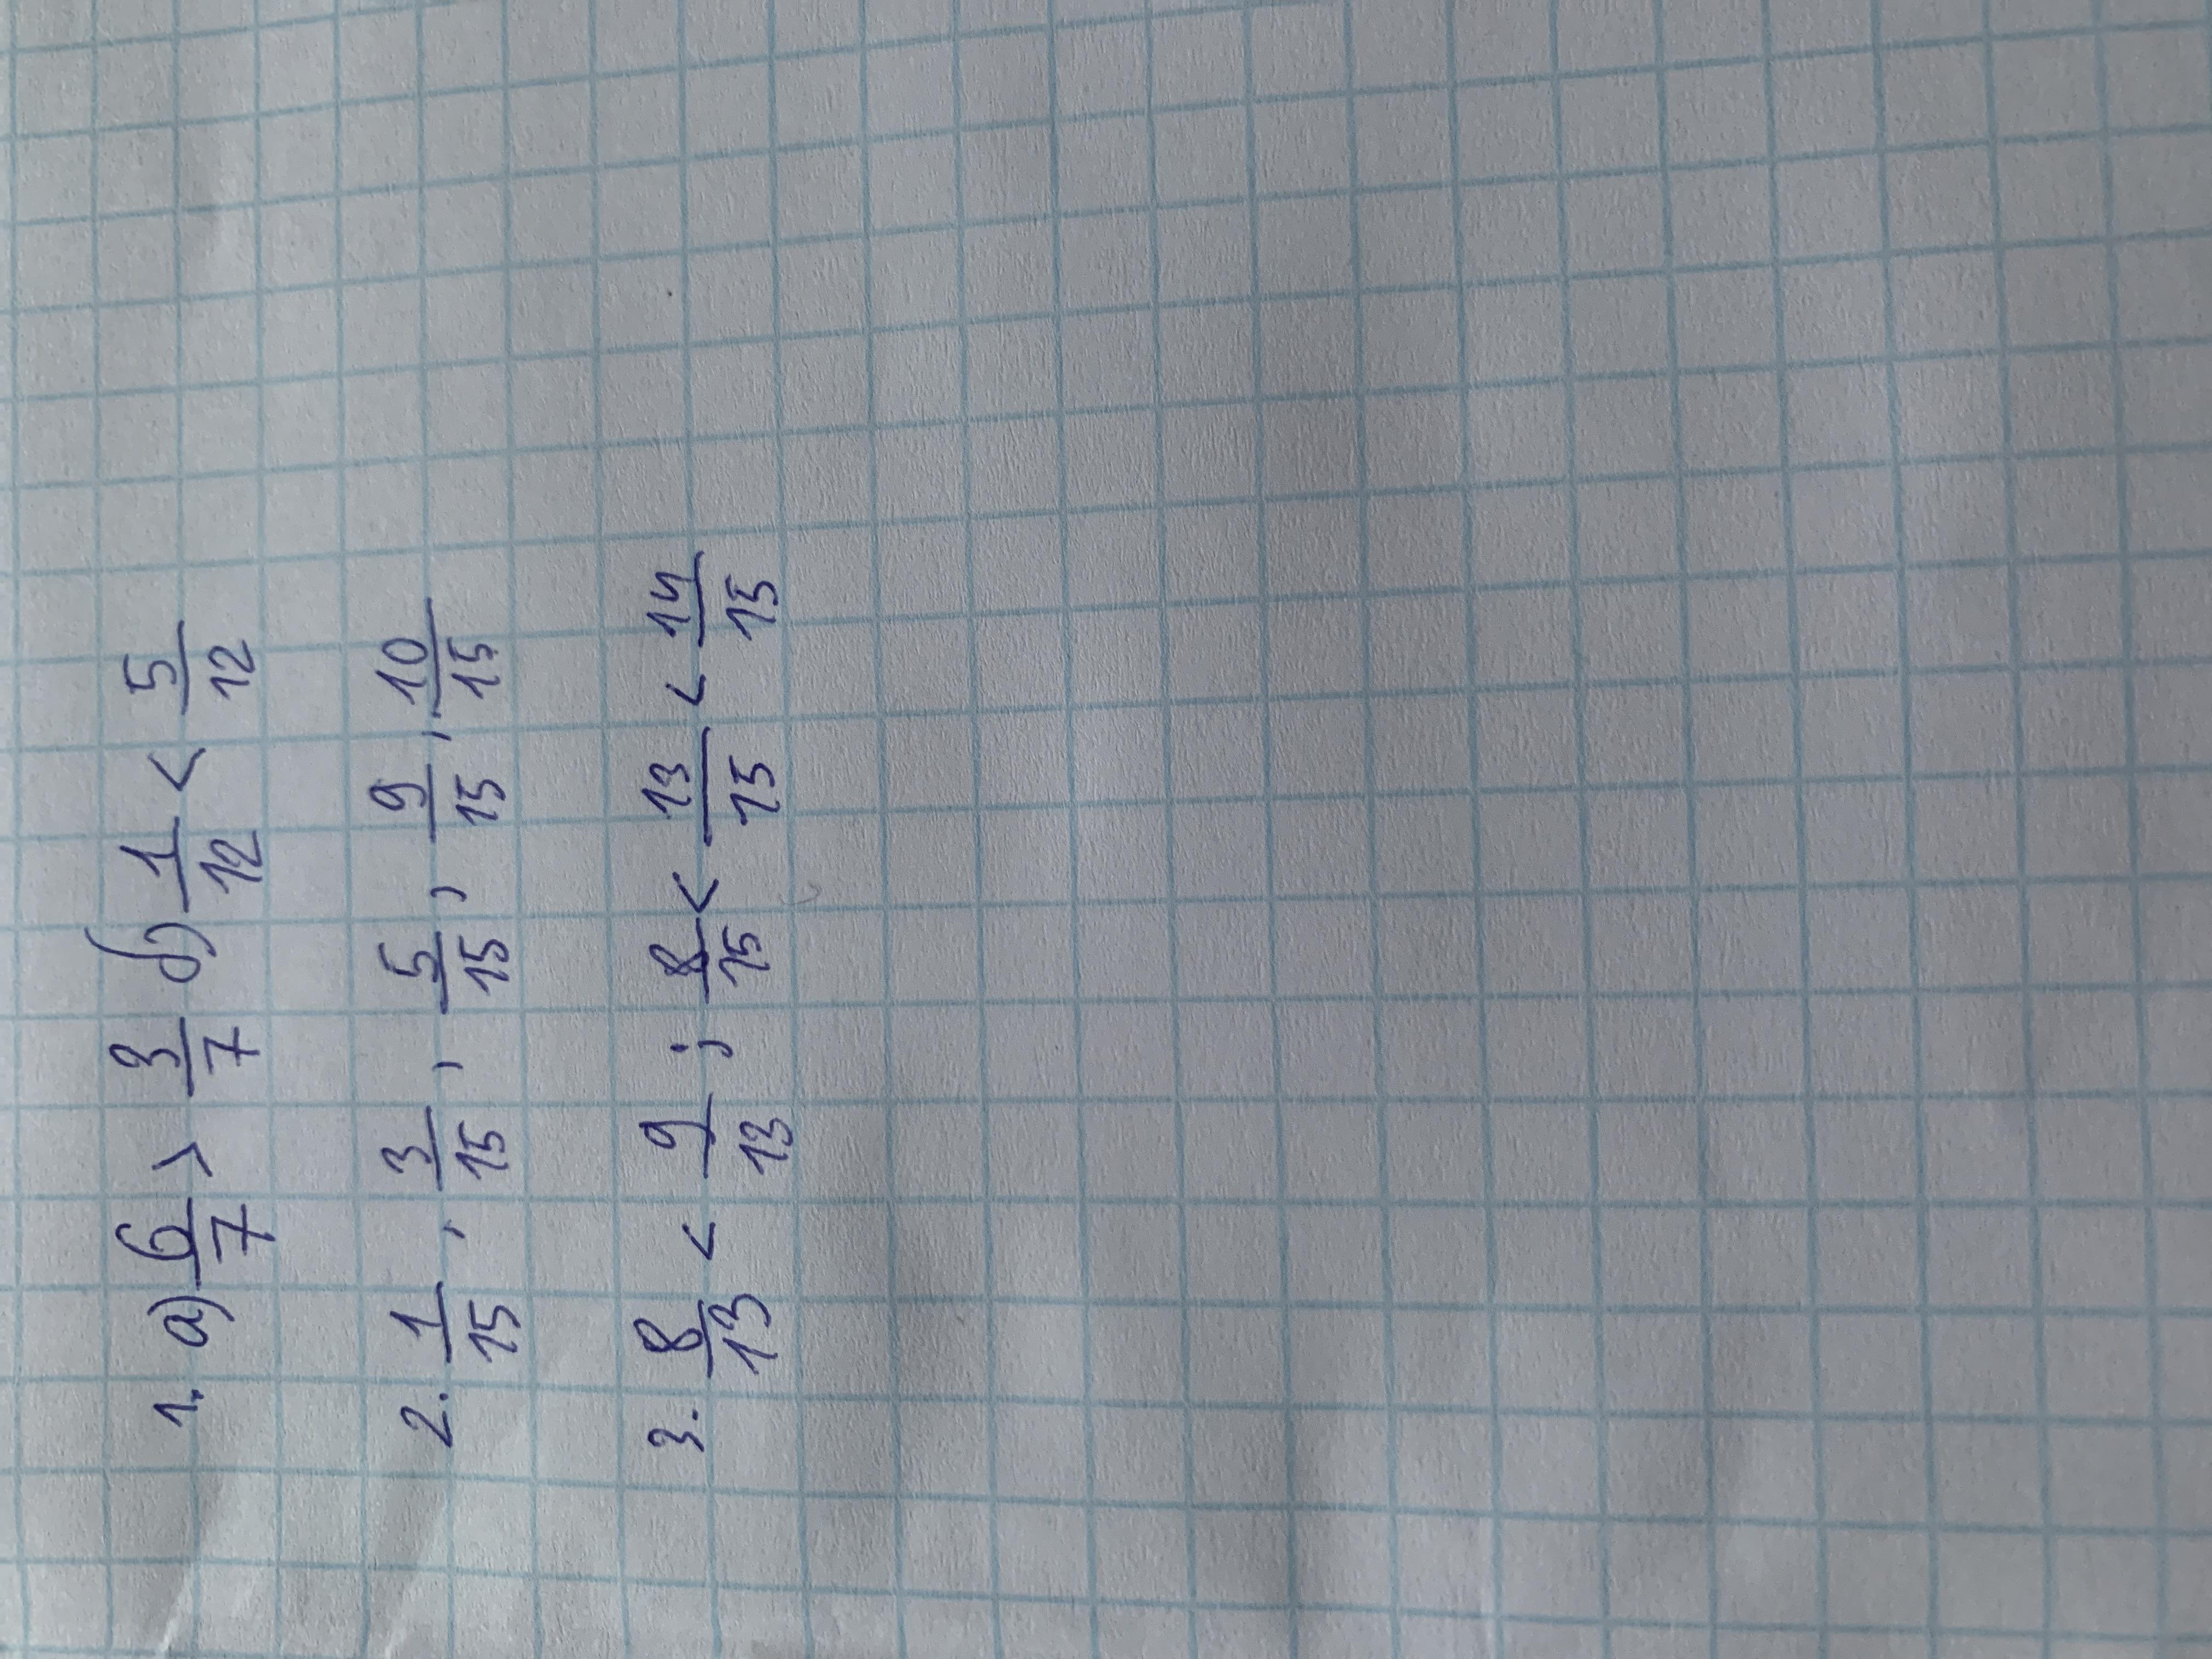 1. а) 6/7 > 3/7 б) 1/12 < 5/12
2. 1/15, 3/15, 5/15, 9/15, 10/15
3. 8/13 < 9/13; 8/15 < 13/15 < 14/15